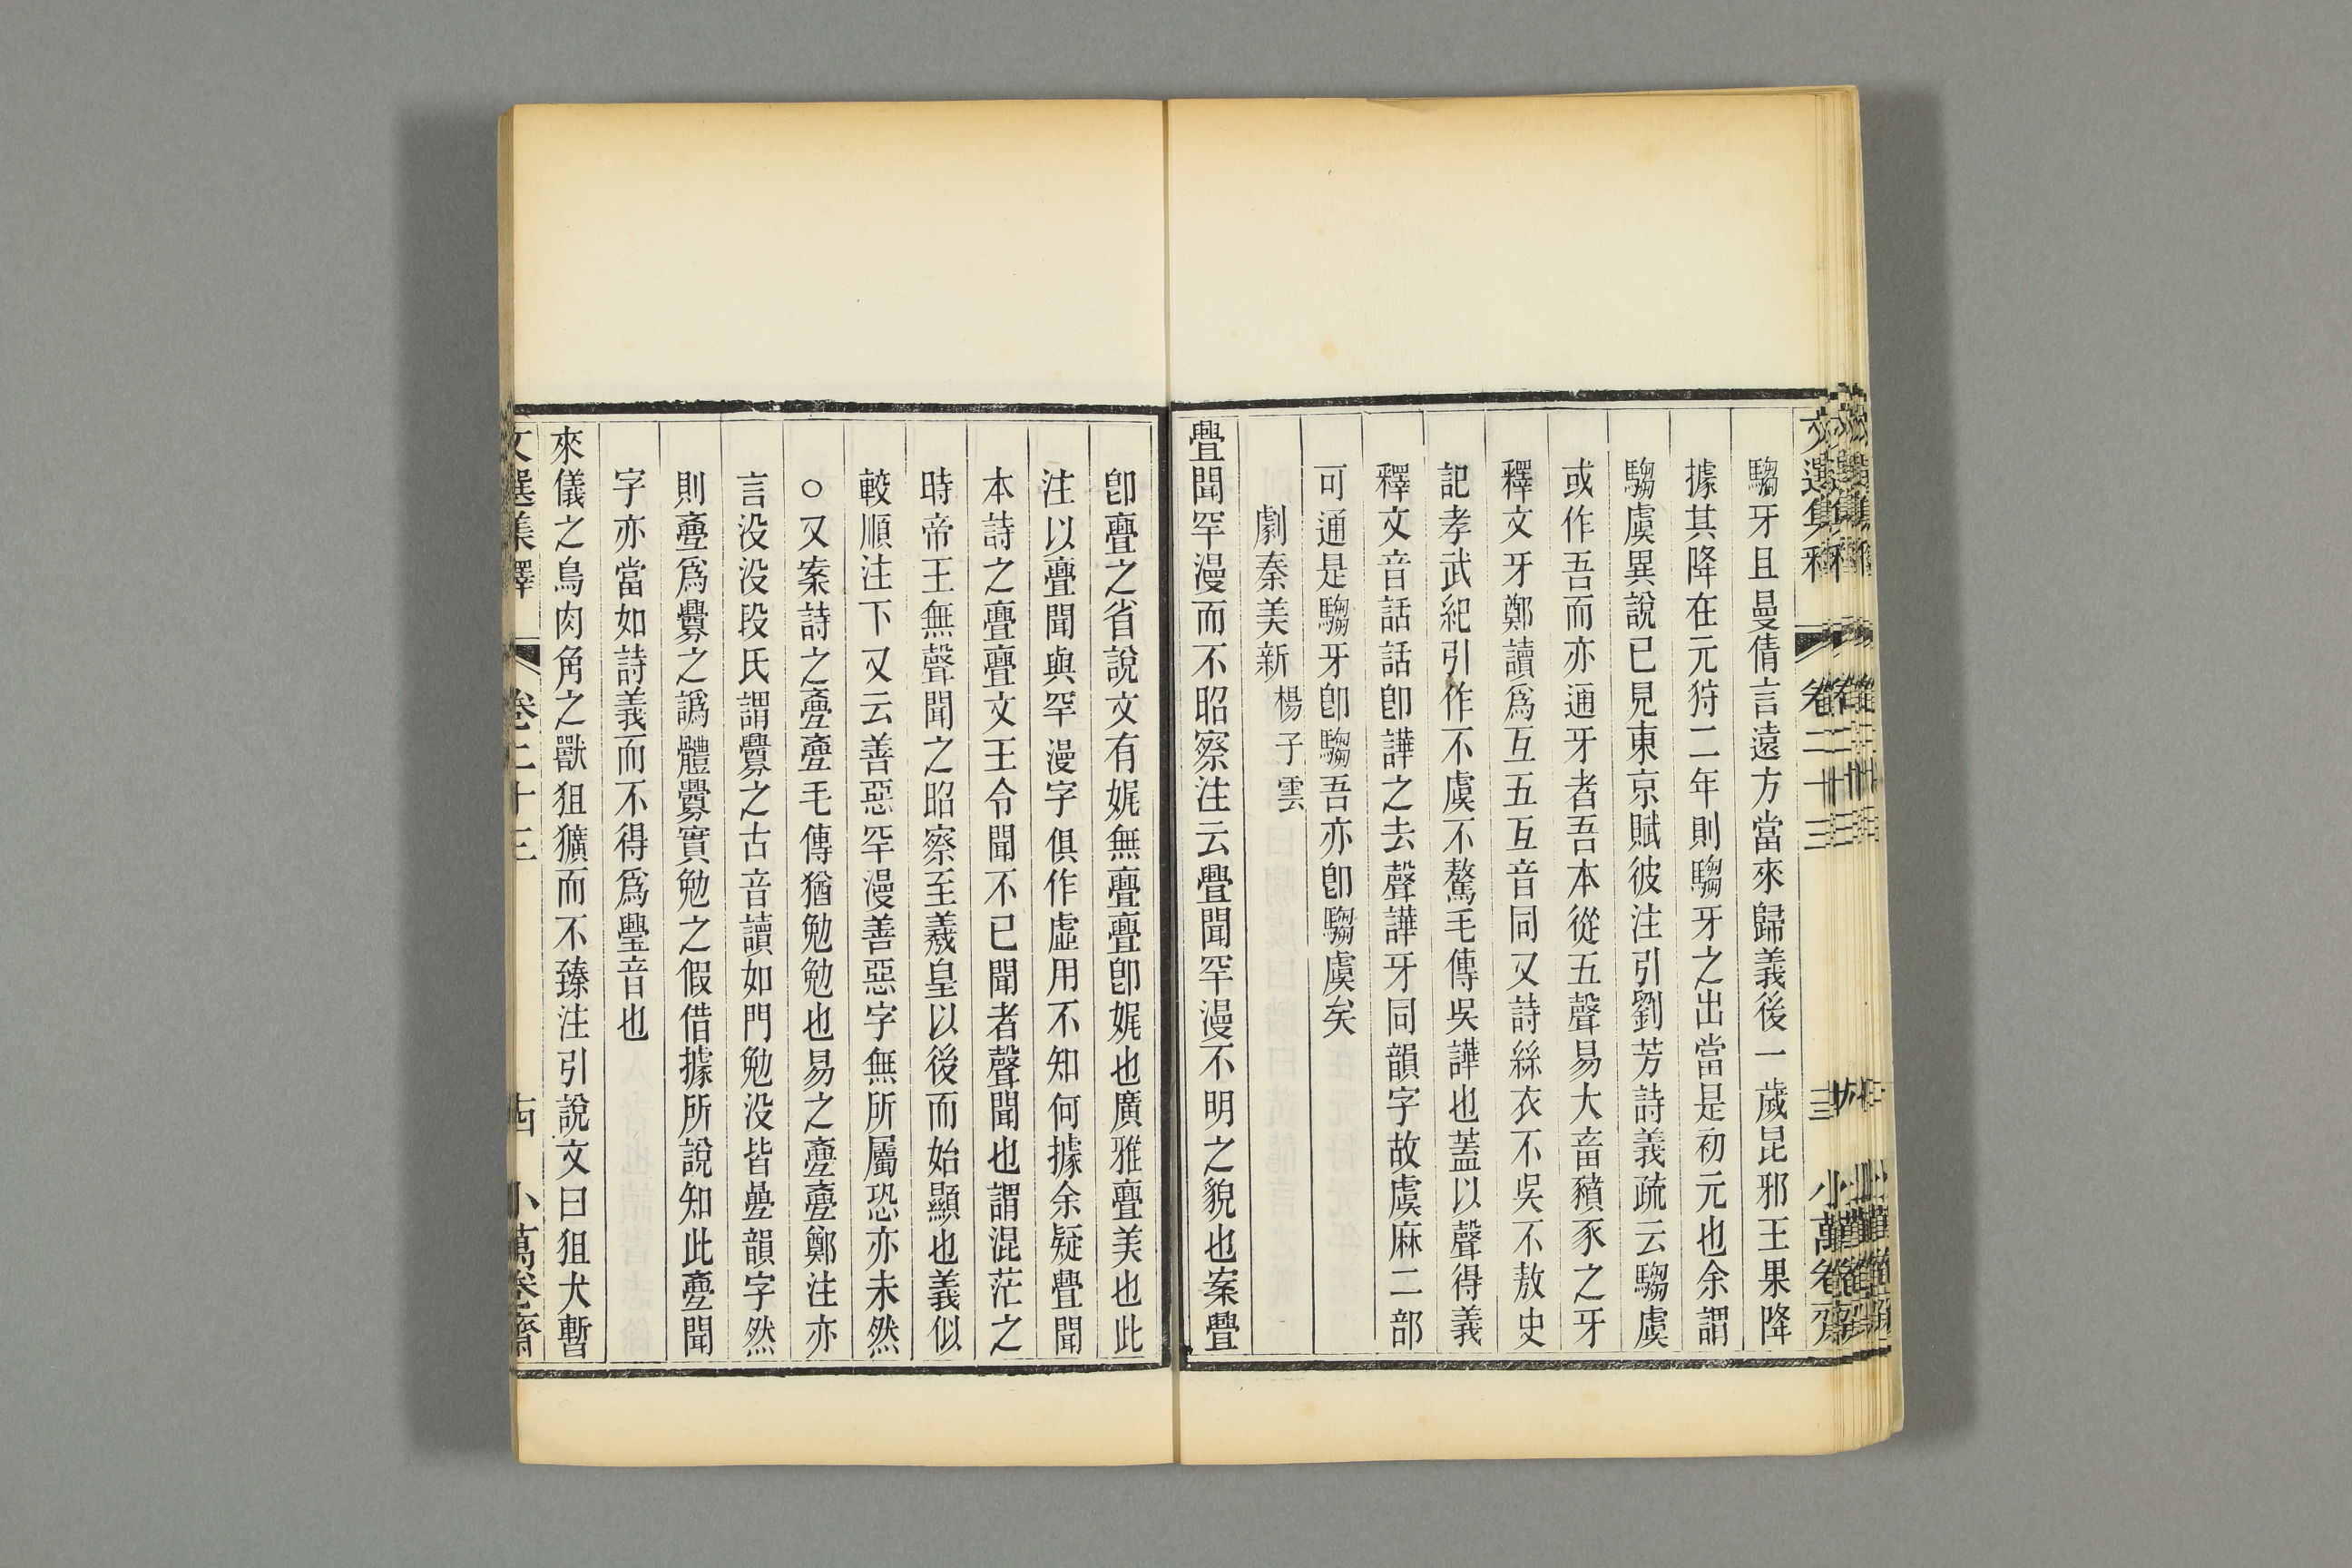 騶牙且曼倩言遠方當來歸義後一歲昆邪王果降
據其降在元狩二年則騶牙之出當是初元也余謂
騶虞異說已見東京賦彼注引劉芳詩義疏云騶虞
或作吾而亦通牙者吾本從五聲易大畜豶豕之牙
釋文牙鄭讀爲互五互音同又詩絲衣不吳不敖史
記孝武紀引作不虞不驁毛傳吳譁也蓋以聲得義
釋文音話話卽譁之去聲譁牙同韻字故虞麻二部
可通是騶牙卽騶吾亦卽騶虞矣
劇秦美新 楊子雲
舋聞罕漫而不昭察注云舋聞罕漫不明之貌也案舋
卽亹之省說文有娓無亹亹卽娓也廣雅亹美也此
注以亹聞與罕漫字俱作虛用不知何據余疑舋聞
本詩之亹亹文王令聞不已聞者聲聞也謂混茫之
時帝王無聲聞之昭察至羲皇以後而始顯也義似
較順注下又云善惡罕漫善惡字無所屬恐亦未然
○又案詩之亹亹毛傳猶勉勉也易之亹亹鄭注亦
言没没段氏謂釁之古音讀如門勉没皆疊韻字然
則亹爲釁之譌體釁實勉之假借據所說知此亹聞
字亦當如詩義而不得爲璺音也
來儀之鳥肉角之獸狙獷而不臻注引說文曰狙犬暫
文選集釋 卷二十三 小萬卷齋